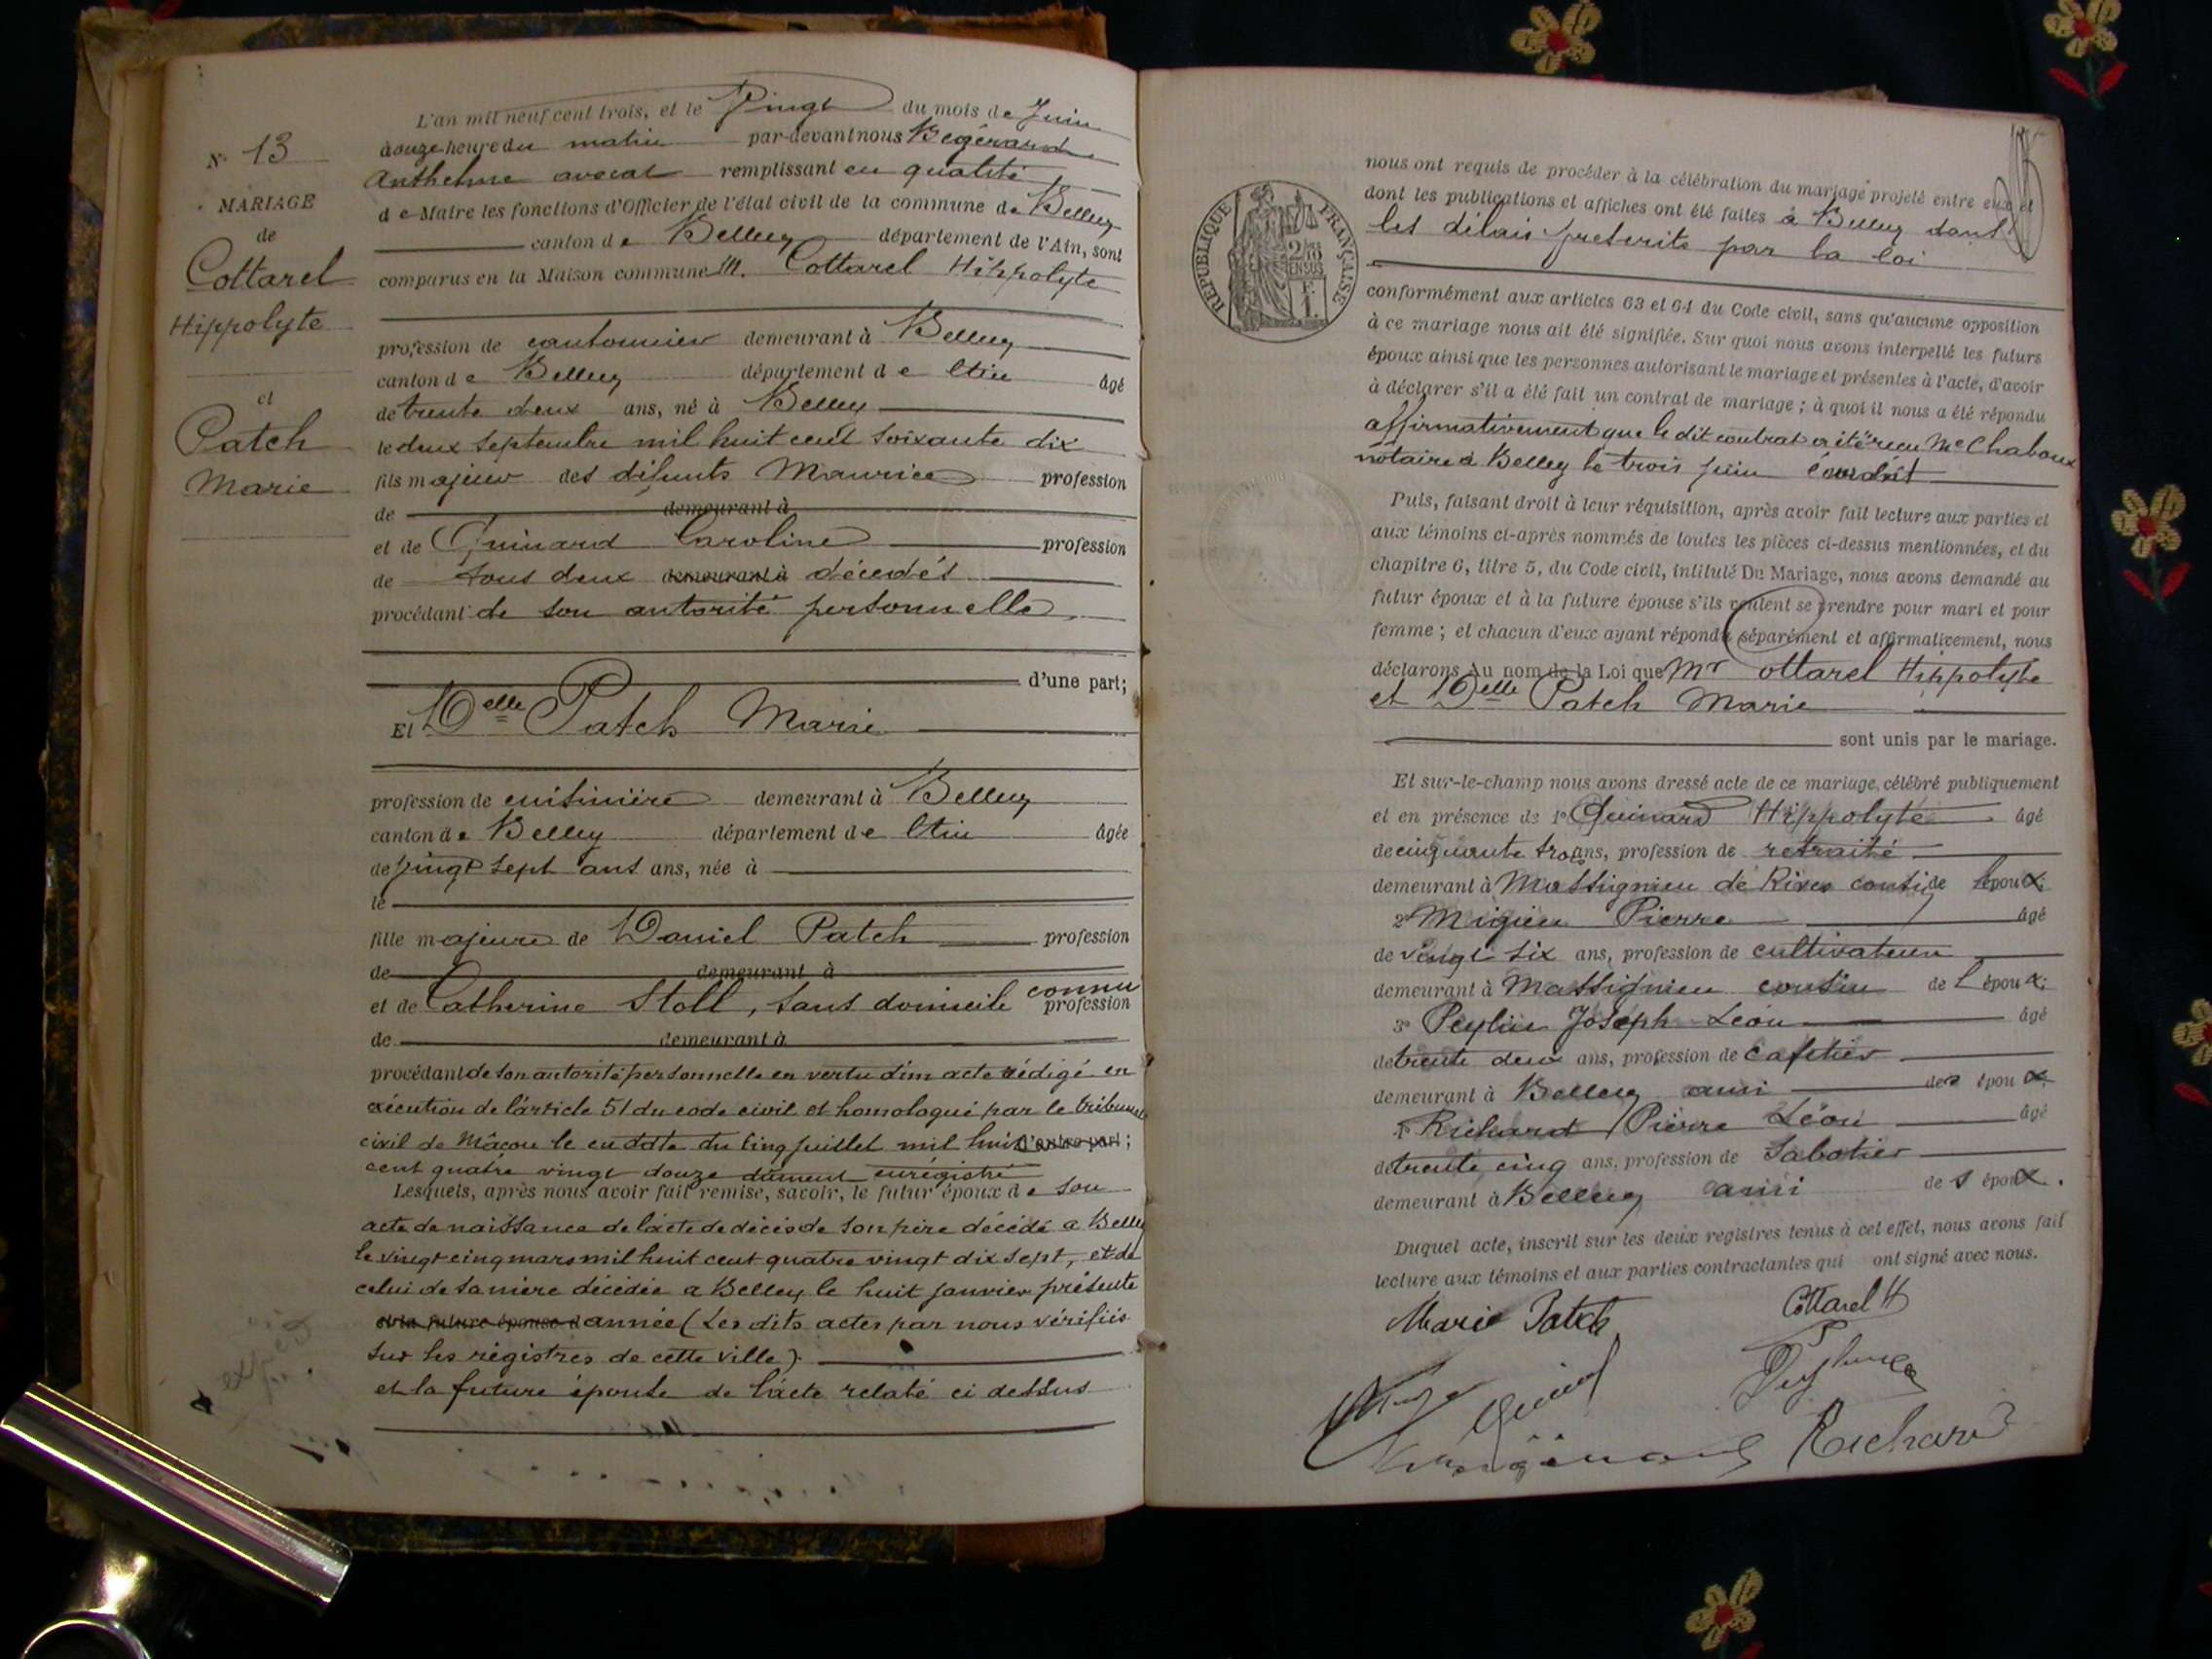 L'an mil neuf cent trois, et le Vingt du mois de Juin
à onze heure du matin par-devant nous Bégérard
Anthelme avocat remplissant en qualité
de Maire les fonctions d'Officier de l'état civil de la commune de Belley
canton de Belley département de l'Ain, sont
comparus en la Maison commune M. Cottarel Hippolyte
profession de cantonnier demeurant à Belley
canton de Belley département de l'Ain âgé
de trente deux ans, né à Belley
le deux septembre mil huit cent soixante dix
fils majeur des défunts Maurice profession
de demeurant à
et de Guinard Caroline profession
de tous deux demeurant à décédés
procédant de son autorité personnelle
d'une part;
Et Delle Patch Marie
profession de cuisinière demeurant à Belley
canton de Belley département de l'Ain âgée
de Vingt sept ans ans, née à
le
fille majeure de Daniel Patch profession
de demeurant à
et de Catherine Stoll, sans domicile connu profession
de demeurant à
procédant de son autorité personnelle en vertu d'un acte rédigé en
exécution de l'article 51 du code civil et homologué par le tribunal
civil de Mâcon le en date du cinq juillet mil huit d'autre part;
cent quatre vingt douze dument enrégistré
Lesquels, après nous avoir fait remise, savoir, le futur époux de son
acte de naissance de l'acte de décès de son père décédé a Belley
le vingt cinq mars mil huit cent quatre vingt dix sept, et de
celui de sa mère décédée a Belley le huit janvier présente
et la future épouse d année (Les dits actes par nous vérifiés
sur les régistres de cette ville).
et la future épouse de l'acte relaté ci dessus
N° 13
MARIAGE
de
Cottarel
Hippolyte
et
Patch
Marie
nous ont requis de procéder à la célébration du mariage projeté entre eux et
dont les publications et affiches ont été faites à Belley dans
les délais prescrits par la loi
RÉPUBLIQUE FRANÇAISE
conformément aux articles 63 et 64 du Code civil, sans qu'aucune opposition
à ce mariage nous ait été signifiée. Sur quoi nous avons interpellé les futurs
époux ainsi que les personnes autorisant le mariage et présentes à l'acte, d'avoir
à déclarer s'il a été fait un contrat de mariage ; à quoi il nous a été répondu
affirmativement que le dit contrat a été reçu Me Chaboux
notaire à Belley le trois juin courant
Puis, faisant droit à leur réquisition, après avoir fait lecture aux parties et
aux témoins ci-après nommés de toutes les pièces ci-dessus mentionnées, et du
chapitre 6, titre 5, du Code civil, intitulé Du Mariage, nous avons demandé au
futur époux et à la future épouse s'ils veulent se prendre pour mari et pour
femme ; et chacun d'eux ayant répondu séparément et affirmativement, nous
déclarons Au nom de la Loi que Mr Cottarel Hippolyte
et Delle Patch Marie
sont unis par le mariage.
Et sur-le-champ nous avons dressé acte de ce mariage, célébré publiquement
et en présence de 1° Guinard Hippolyte âgé
de cinquante trois ans, profession de retraité
demeurant à Massignieu de Rives cousin de l'époux;
2° Migieu Pierre âgé
de vingt six ans, profession de cultivateur
demeurant à Massignieu cousin de l'époux;
3° Peylin Joseph Léon âgé
de trente deux ans, profession de cafetier
demeurant à Belley ami des époux
4° Richard Pierre Léon âgé
de trente cinq ans, profession de Sabotier
demeurant à Belley ami des époux.
Duquel acte, inscrit sur les deux registres tenus à cet effet, nous avons fait
lecture aux témoins et aux parties contractantes qui ont signé avec nous.
Marie Patch Cottarel H
Richard